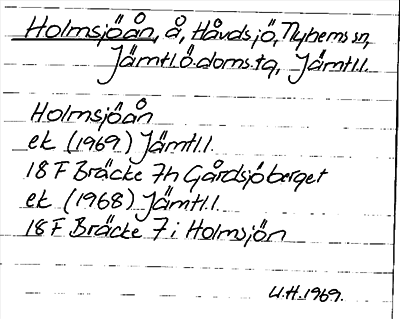 Holmsjöån, å, Håvdsjö, Nyhems sn,
Jämtl.ö.doms.tg, Jämtl.l.
Holmsjöån
ek (1969) Jämtl.l.
18 F Bräcke 7h Gårdsjöberget
ek (1968) Jämtl.l.
18 F Bräcke 7 i Holmsjön
U.H. 1969.